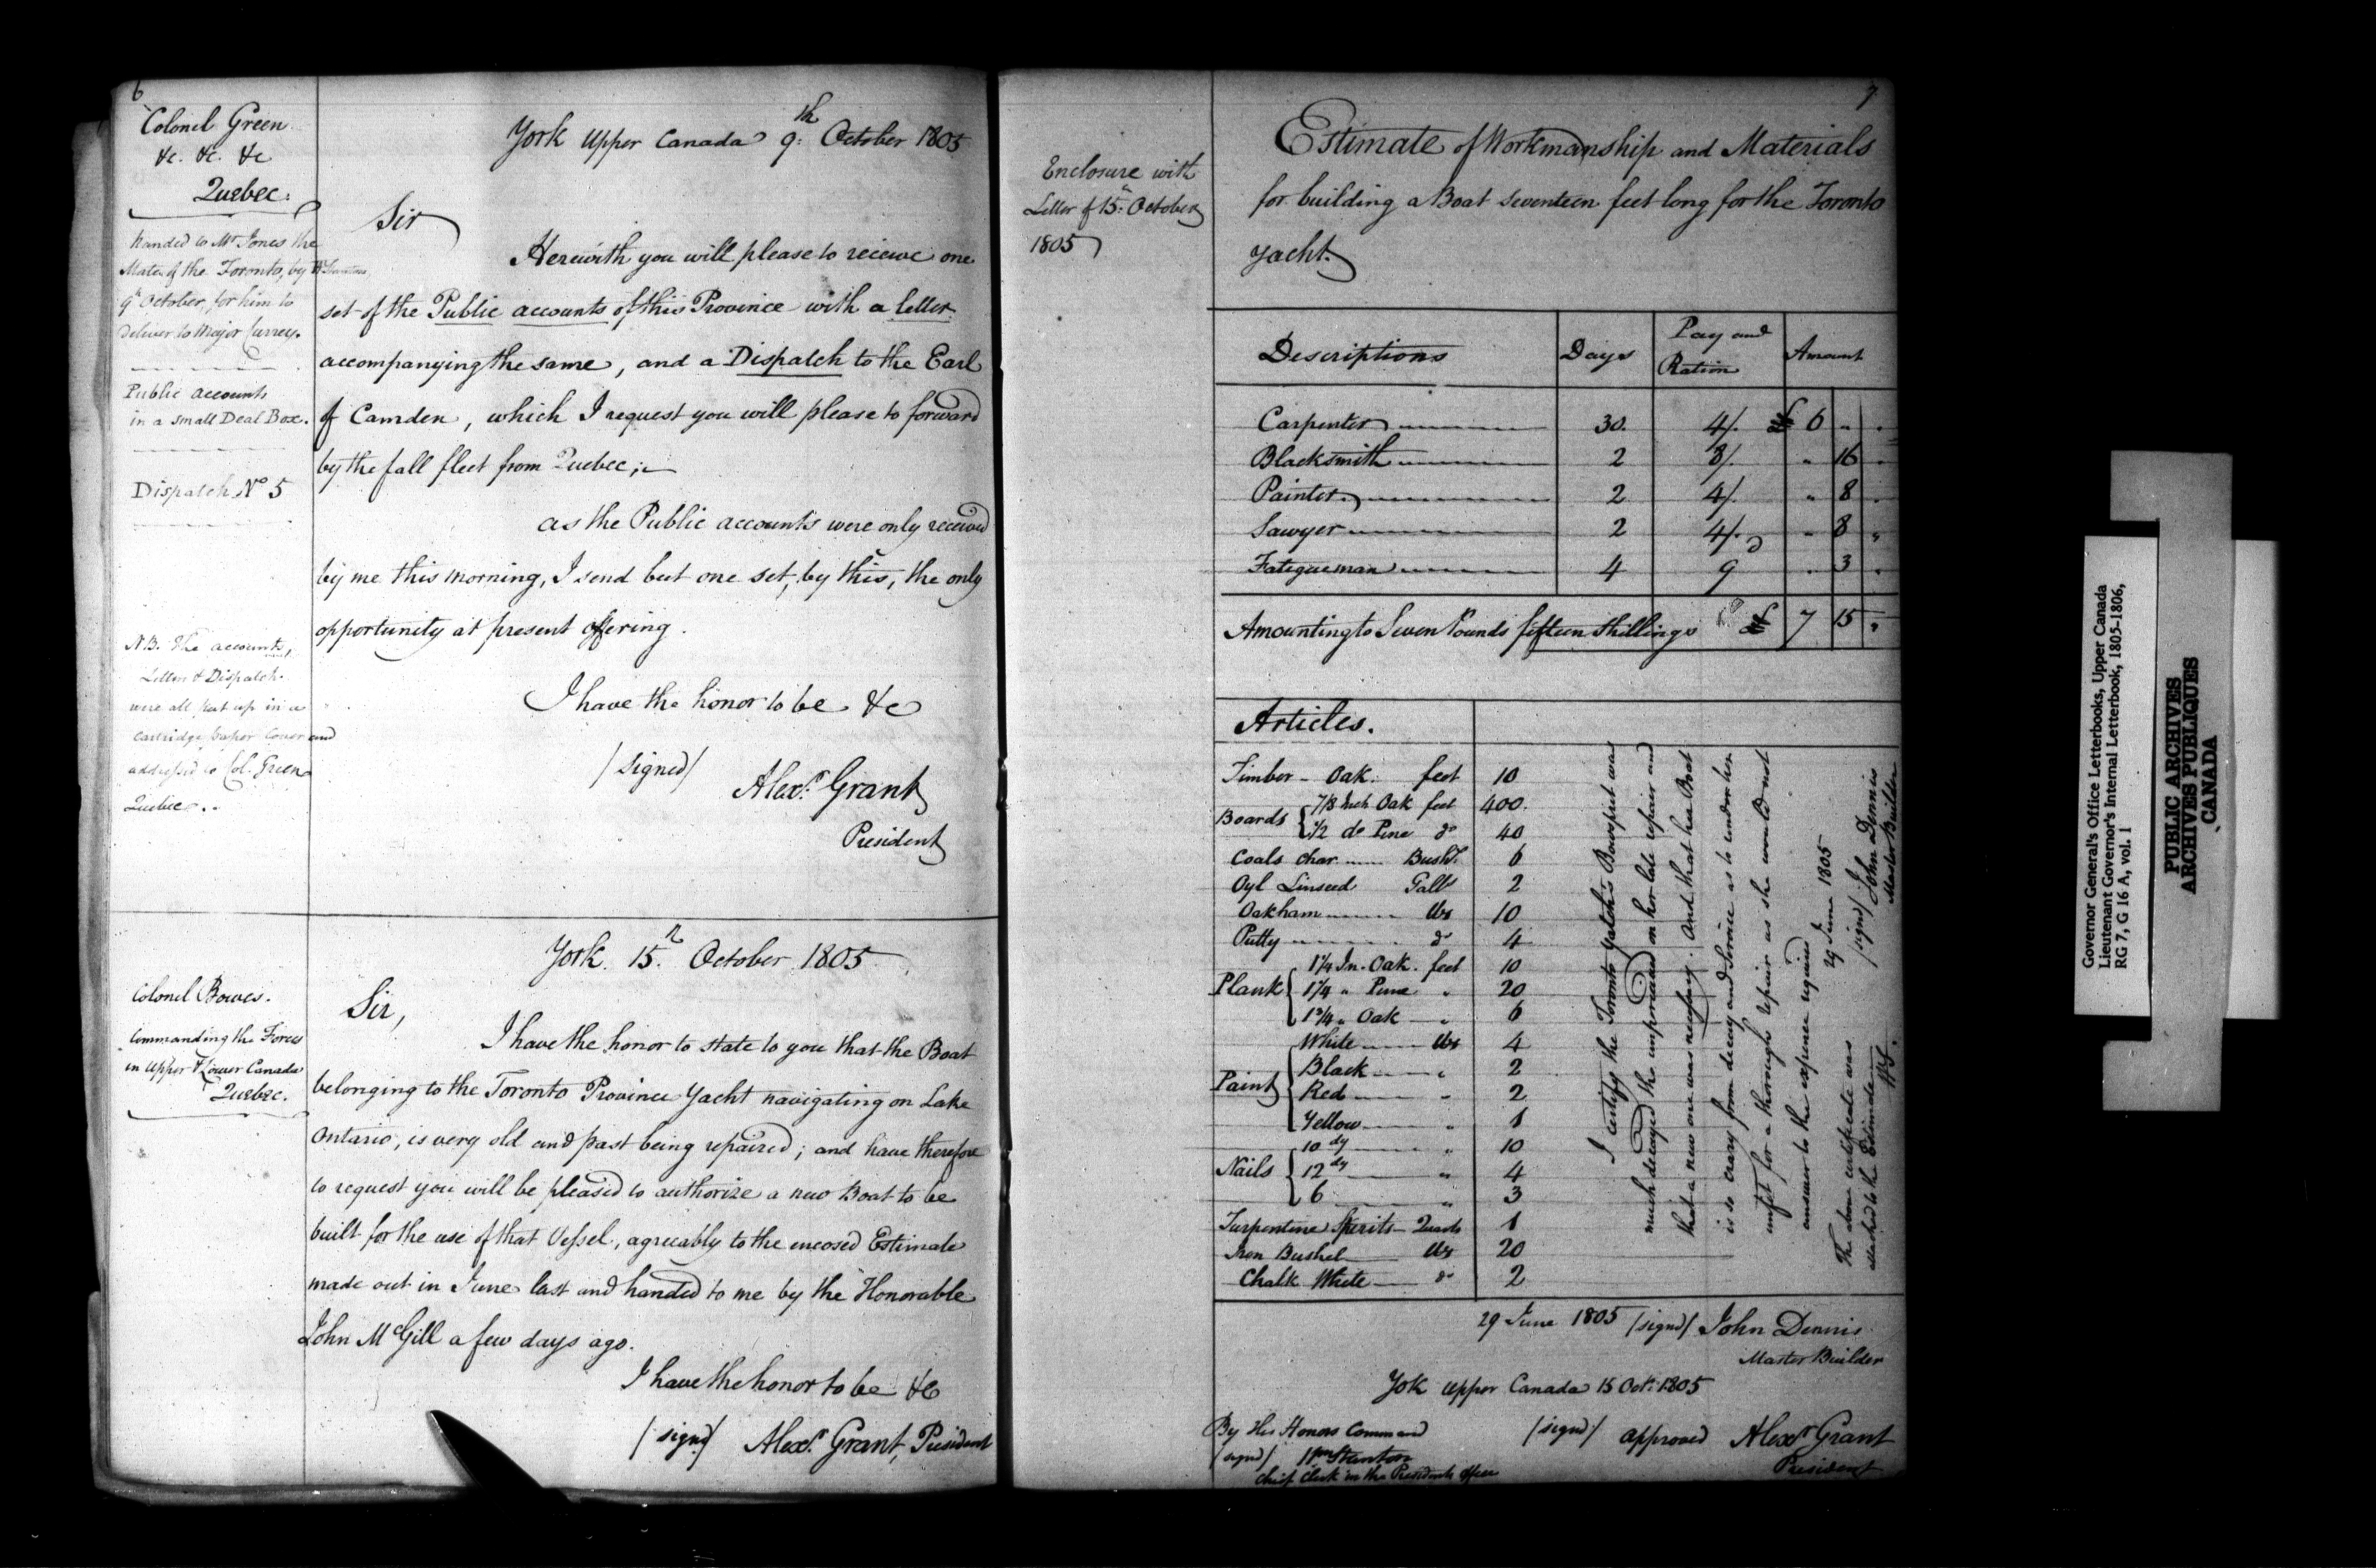 6
Colonel Green
&c. &c. &c
Quebec.
handed to Mr Jones the
Mate of the Toronto, by
9th October, for him to
deliver to Major Currey.
Public accounts
in a small Deal Box.
Dispatch No 5
N.B. The accounts,
Letter & Dispatch
were all put up in a
cartridge paper Cover and
addressed to Col. Green
Quebec.
York Upper Canada 9th October 1805
Sir
Herewith you will please to receive one
set of the Public accounts of this Province with a letter
accompanying the same, and a Dispatch to the Earl
of Camden, which I request you will please to forward
by the fall fleet from Quebec;
as the Public accounts were only received
by me this morning, I send but one set, by this, the only
opportunity at present offering.
I have the honor to be &c
/signed/
Alexr. Grant
President
Colonel Bowes.
Commanding the Forces
in Upper & Lower Canada
Quebec.
York. 15th October 1805
Sir,
I have the honor to state to you that the Boat
belonging to the Toronto Province Yacht navigating on Lake
Ontario, is very old and past being repaired; and have therefore
to request you will be pleased to authorize a new Boat to be
built for the use of that Vessel, agreeably to the encosed Estimate
made out in June last and handed to me by the Honorable
John McGill a few days ago.
I have the honor to be &c
/signd/ Alexr. Grant, President
7
Enclosure with
Letter of 15th October
1805
Estimate of Workmanship and Materials
for building a Boat seventeen feet long for the Toronto
Yacht.
Descriptions Days Pay and Ration Amount
Carpenter 30. 4/. £ 6 " .
Blacksmith 2 8/. " 16 .
Painter 2 4/. " 8 .
Sawyer 2 4/. " 8 "
Fatigueman 4 9d . 3 .
Amounting to Seven Pounds fifteen shillings £ 7 15 "
Articles.
Timber - Oak. feet 10
Boards { 7/8 Inch Oak feet 400.
1/2 do Pine do 40
Coals char Bushl. 6
Oyl Linseed Galls 2
Oakham lbs 10
Putty do 4
Plank { 1 1/4 In. Oak. feet 10
1 1/4 " Pine " 20
1 3/4 " Oak " 6
Paint { White lbs 4
Black " 2
Red " 2
Yellow " 1
Nails { 10 dy " 10
12 dy " 4
6 " 3
Turpentine Spirits Quarts 1
Iron Bushel lbs 20
Chalk White do 2
I certify the Toronto Yatch's Bowsprit was
much decayed the unpresidented on her late repair and
that a new one was necessary. And that her Boat
is so crazy from decay and Service as to render her
unfit for a thorough repair as she would not
answer to the expence required
29 June 1805
/signd/ John Dennis
Master Builder
The above certificate was
attached to the Estimate
29 June 1805 /signd/ John Dennis
Master Builder
Yok Upper Canada 15 Octr. 1805
By His Honors Command
/signd/ Wm Stanton
Chief Clerk in the Presidents Office
/signd/ approved Alexr Grant
President
Governor General's Office Letterbooks, Upper Canada
Lieutenant Governor's Internal Letterbook, 1805-1806,
RG 7, G 16 A, vol. 1
PUBLIC ARCHIVES
ARCHIVES PUBLIQUES
CANADA